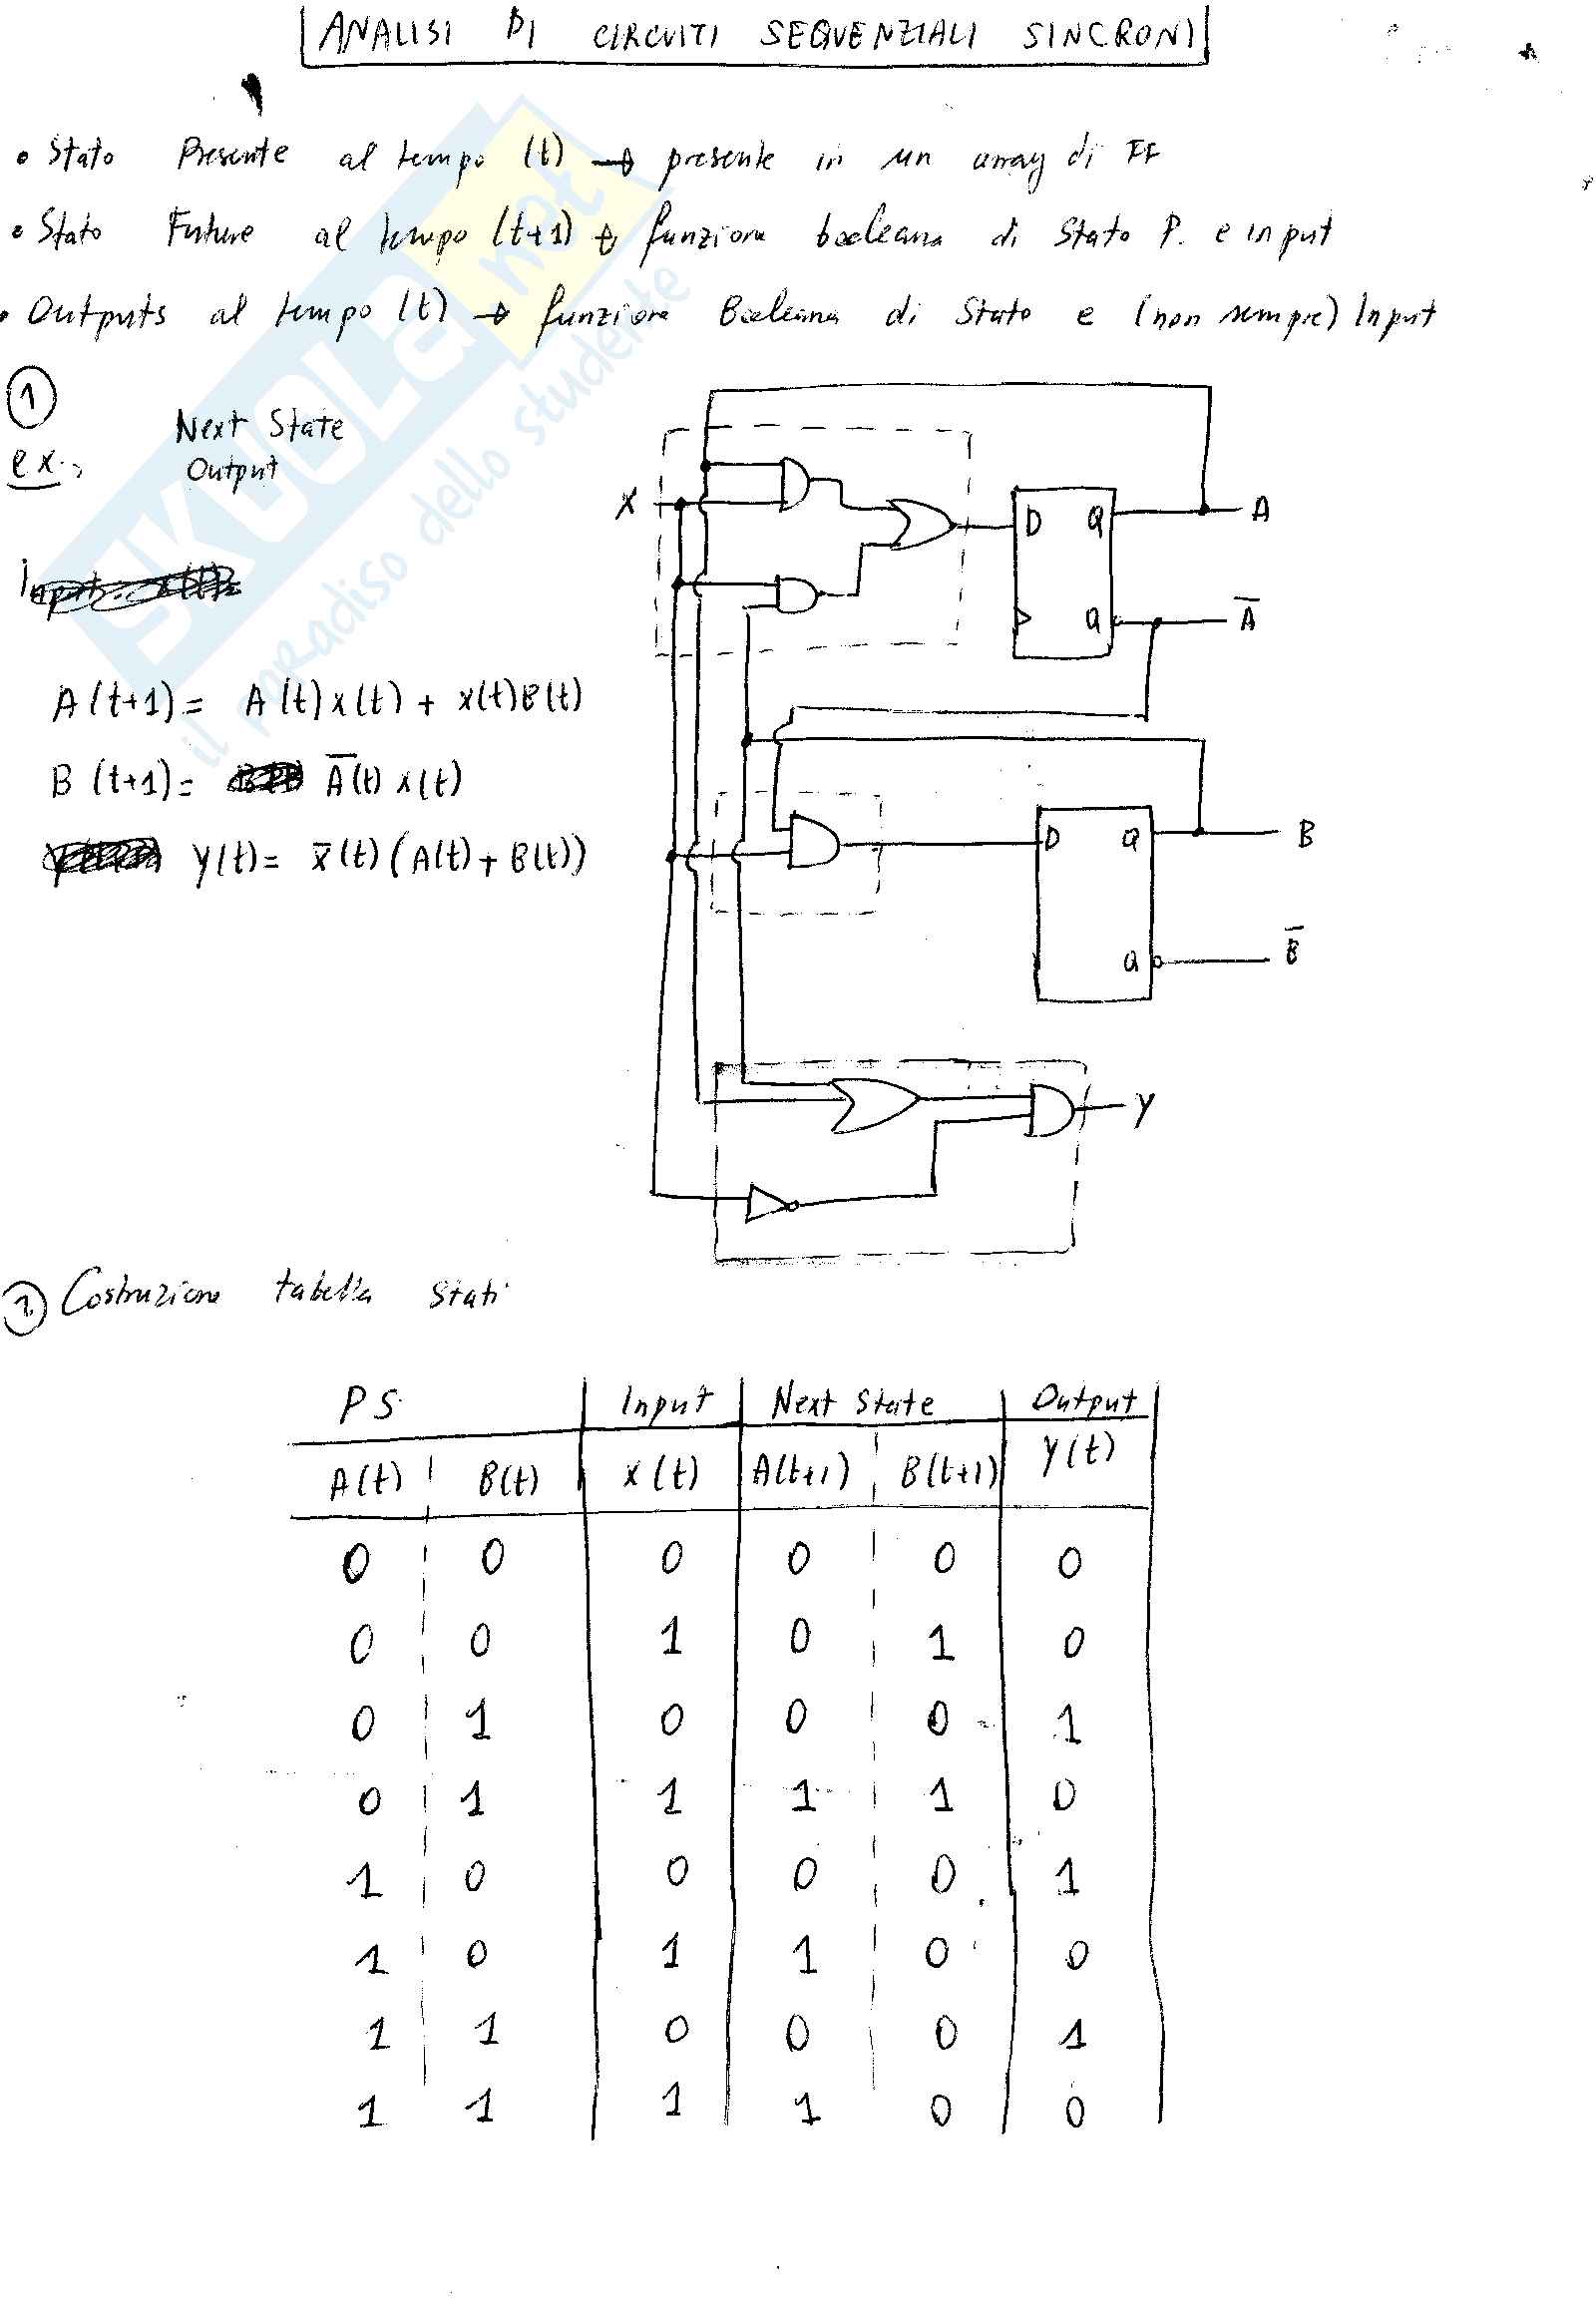 ANALISI DI CIRCUITI SEQUENZIALI SINCRONI
• Stato Presente al tempo (t) → presente in un array di FF
• Stato Futuro al tempo (t+1) → funzione booleana di Stato P. e input
• Outputs al tempo (t) → funzione Booleana di Stato e (non sempre) Input
1
ex.
Next State
Output
A(t+1) = A(t)x(t) + x(t)B(t)
B(t+1) = A̅(t) x(t)
Y(t) = x̅(t)(A(t) + B(t))
X
D Q A
Q A̅
D Q B
Q B̅
Y
2 Costruzione tabella Stati
PS. Input Next State Output
A(t) B(t) X(t) A(t+1) B(t+1) Y(t)
0 0 0 0 0 0
0 0 1 0 1 0
0 1 0 0 0 1
0 1 1 1 1 0
1 0 0 0 0 1
1 0 1 1 0 0
1 1 0 0 0 1
1 1 1 1 0 0
SKUOLA.net
il paradiso dello studente